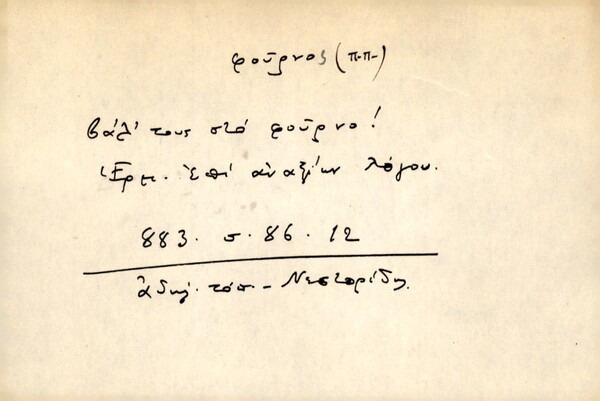 φοῦρνος (π.π.)
Βάλ' τους στό φοῦρνο!
Ἑρμ. Ἐπί ἀναξίων λόγου.
883. σ. 86. 12
ἀδήλ. τόπ. - Νεστορίδης.